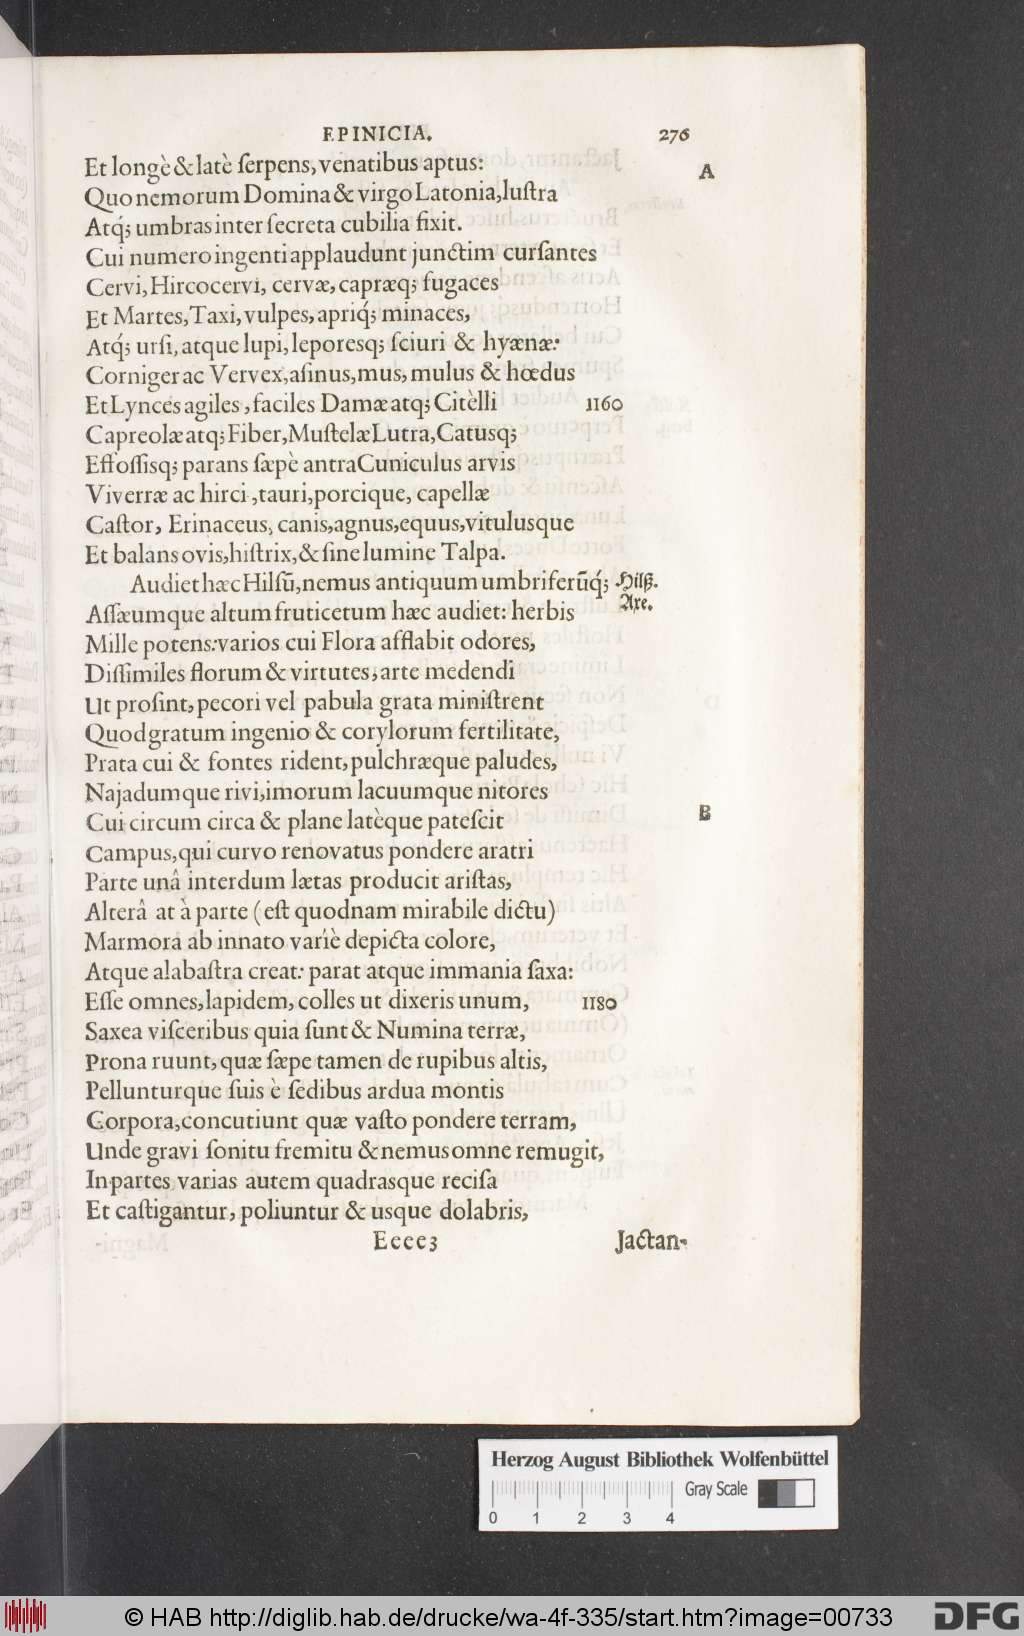 EPINICIA. 276
Et longè & latè ſerpens, venatibus aptus: A
Quo nemorum Domina & virgo Latonia, luſtra
Atq́; umbras inter ſecreta cubilia fixit.
Cui numero ingenti applaudunt junctim curſantes
Cervi, Hircocervi, cervæ, capræq; fugaces
Et Martes, Taxi, vulpes, apriq́; minaces,
Atq́; urſi, atque lupi, leporesq; ſciuri & hyænæ:
Corniger ac Vervex, aſinus, mus, mulus & hœdus
Et Lynces agiles, faciles Damæ atq; Citèlli 1160
Capreolæ atq; Fiber, Muſtelæ Lutra, Catusq;
Effoſſisq; parans ſæpè antra Cuniculus arvis
Viverræ ac hirci, tauri, porcique, capellæ
Caſtor, Erinaceus, canis, agnus, equus, vitulusque
Et balans ovis, hiſtrix, & ſine lumine Talpa.
Audiet hæc Hilsū, nemus antiquum umbriferūq́; Hilß.
Aſſæumque altum fruticetum hæc audiet: herbis Axe.
Mille potens: varios cui Flora afflabit odores,
Diſſimiles florum & virtutes; arte medendi
Ut proſint, pecori vel pabula grata miniſtrent
Quod gratum ingenio & corylorum fertilitate,
Prata cui & fontes rident, pulchræque paludes,
Najadumque rivi, imorum lacuumque nitores
Cui circum circa & plane latèque pateſcit B
Campus, qui curvo renovatus pondere aratri
Parte unâ interdum lætas producit ariſtas,
Alterâ at à parte (eſt quodnam mirabile dictu)
Marmora ab innato variè depicta colore,
Atque alabaſtra creat: parat atque immania ſaxa:
Eſſe omnes, lapidem, colles ut dixeris unum, 1180
Saxea viſceribus quia ſunt & Numina terræ,
Prona ruunt, quæ ſæpe tamen de rupibus altis,
Pellunturque ſuis è ſedibus ardua montis
Corpora, concutiunt quæ vaſto pondere terram,
Unde gravi ſonitu fremitu & nemus omne remugit,
In partes varias autem quadrasque reciſa
Et caſtigantur, poliuntur & usque dolabris,
Eeee3 Jactan-
Herzog August Bibliothek Wolfenbüttel
Gray Scale
0 1 2 3 4
© HAB http://diglib.hab.de/drucke/wa-4f-335/start.htm?image=00733
DFG